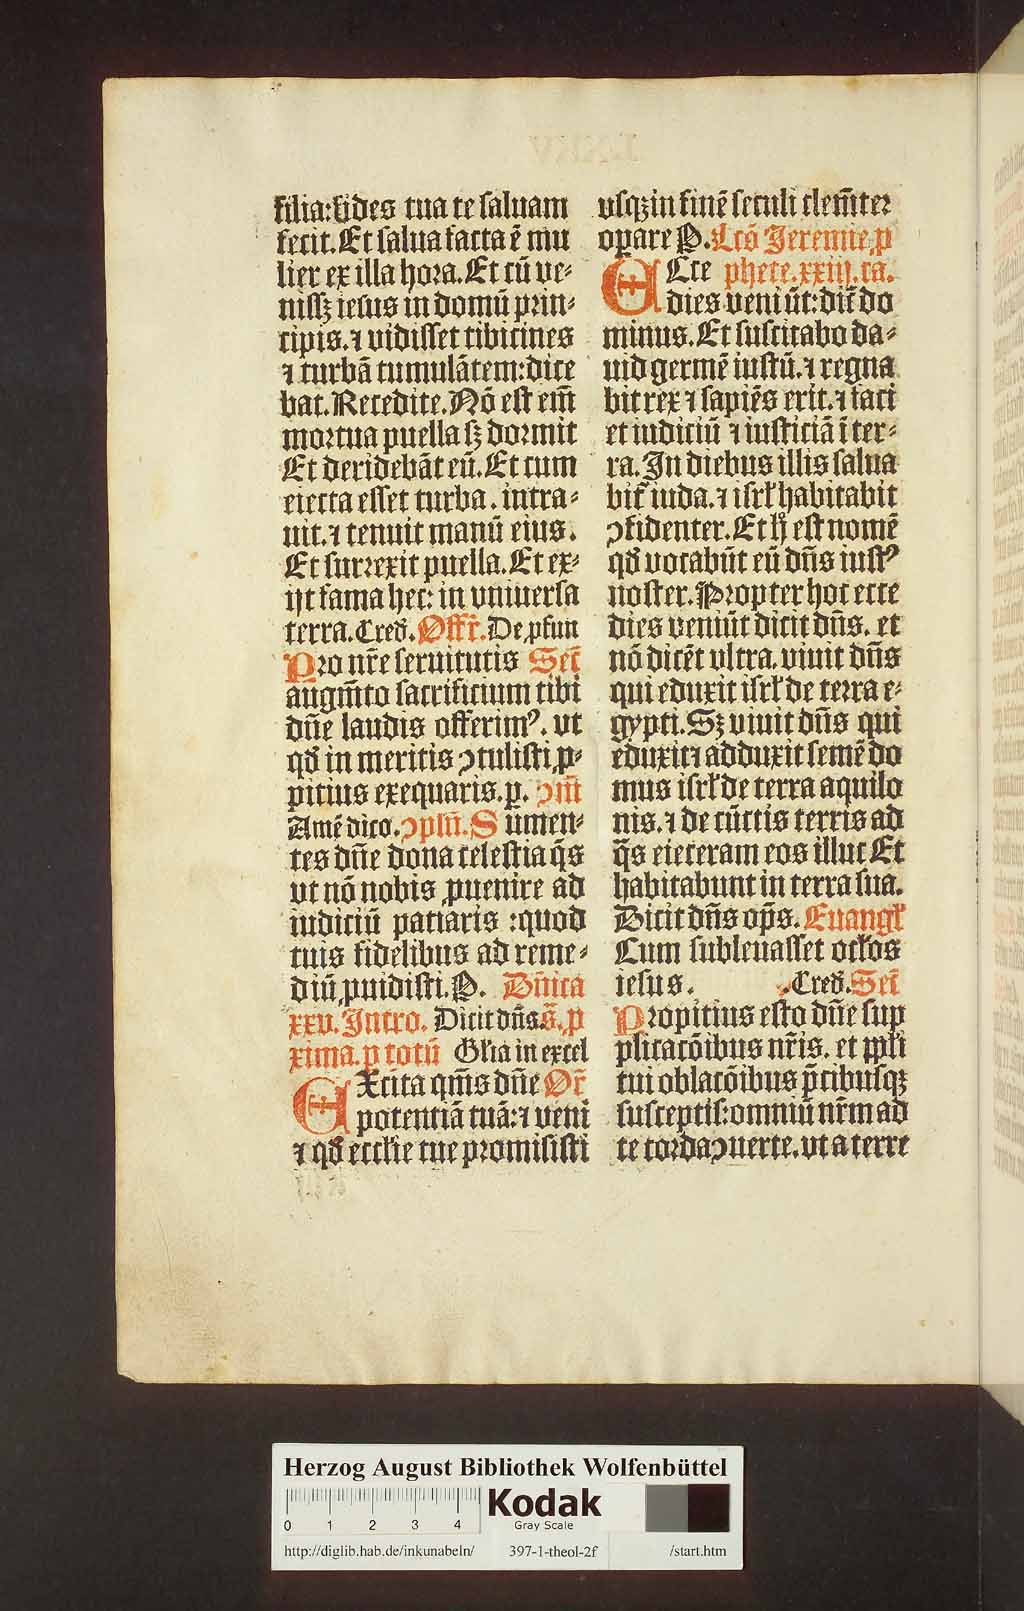 filia: fides tua te saluam
fecit. Et salua facta ē mu
lier ex illa hora. Et cū ve⸗
nissꝫ iesus in domū prin⸗
cipis. ⁊ vidisset tibicines
⁊ turbā tumulātem: dice
bat. Recedite. Nō est em̄
mortua puella sꝫ dormit
Et deridebāt eū. Et cum
eiecta esset turba. intra⸗
uit. ⁊ tenuit manū eius.
Et surrexit puella. Et ex⸗
ijt fama hec: in vniuersa
terra. Cred̄. Offr̄. De ꝓfun
Pro nr̄e seruitutis Secr̄
augm̄to sacrificium tibi
dn̄e laudis offerimꝰ. vt
qd̄ in meritis ꝯtulisti ꝓ⸗
picius exequaris. p. ꝯm̄
Amē dico. ꝯplū. Sumen⸗
tes dn̄e dona celestia q̄s
vt nō nobis ꝓuenire ad
iudiciū patiaris: quod
tuis fidelibus ad reme⸗
diū ꝓuidisti. P. Dn̄ica
xxv. Intro. Dicit dn̄s. s̄. ꝓ
xima. p totū Gl'ia in excel
EXcita qm̄s dn̄e Or̄
potentiā tuā: ⁊ veni
⁊ qd̄ eccl'ie tue promisisti
vsqꝫ in finē seculi clem̄ter
opare P. Lcō Jeremie ꝓ
ECce phete. xxiij. ca.
dies veniūt: dic̄ do
minus. Et suscitabo da⸗
uid germē iustū. ⁊ regna
bit rex ⁊ sapiēs erit. ⁊ faci
et iudiciū ⁊ iusticiā ī ter⸗
ra. In diebus illis salua
bit̄ iuda. ⁊ isrl' habitabit
ꝯfidenter. Et h̄ est nomē
qd̄ vocabūt eū dn̄s iustꝰ
noster. Propter hoc ecce
dies veniūt dicit dn̄s. et
nō dicēt vltra. viuit dn̄s
qui eduxit isrl' de terra e⸗
gypti. Sꝫ viuit dn̄s qui
eduxit ⁊ adduxit semē do
mus isrl' de terra aquilo
nis. ⁊ de cūctis terris ad
q̄s eieceram eos illuc Et
habitabunt in terra sua.
Dicit dn̄s op̄s. Euangl'
Cum subleuasset ocl'os
iesus. Cred̄. Secr̄
Propitius esto dn̄e sup
plicacōibus nr̄is. et ppl'i
tui oblacōibus p̄cibusqꝫ
susceptis: omniū nr̄m ad
te corda ꝯuerte. vt a terre
Herzog August Bibliothek Wolfenbüttel
0 1 2 3 4
Kodak
Gray Scale
http://diglib.hab.de/inkunabeln/ 397-1-theol-2f /start.htm